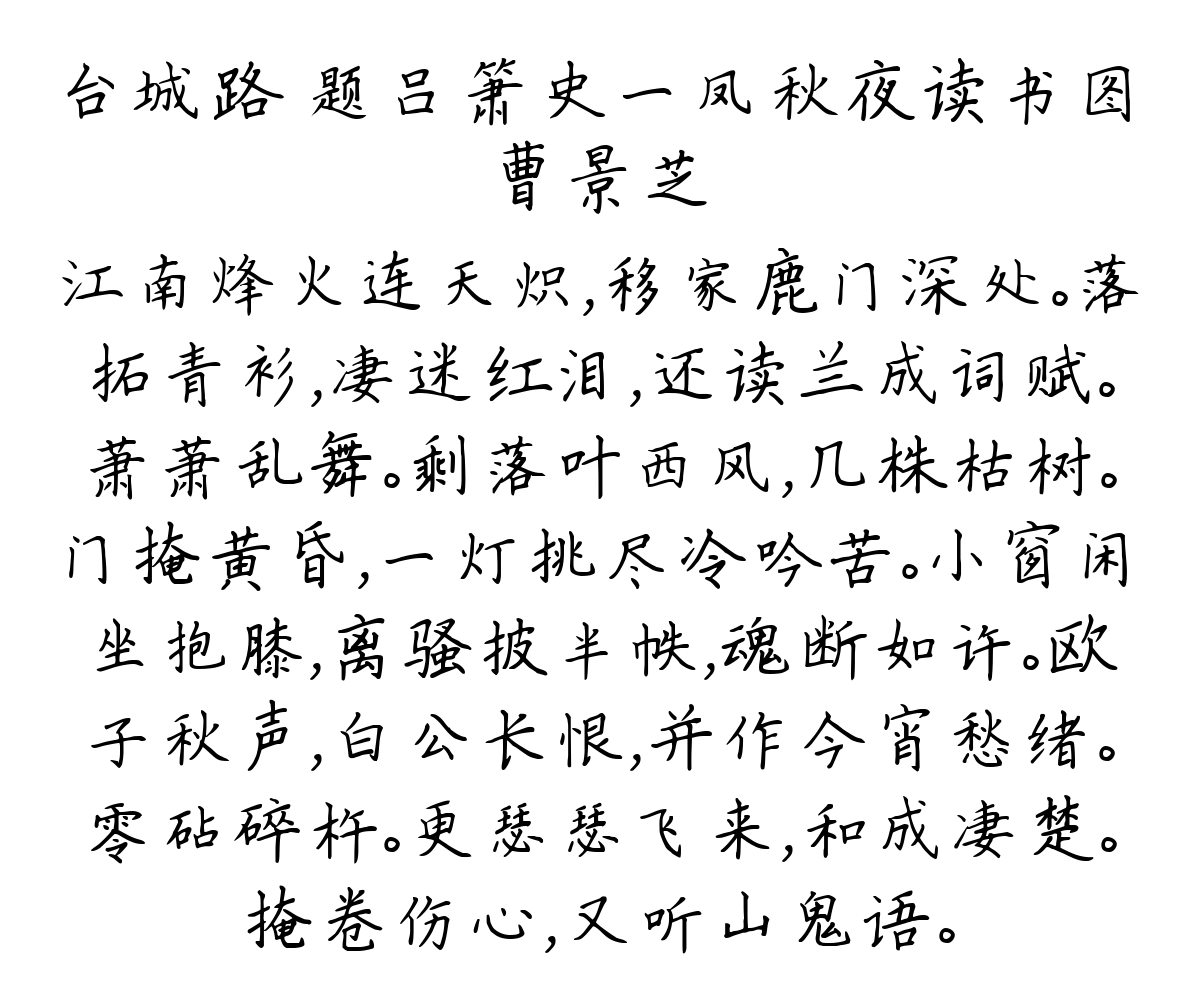 台城路 题吕箫史一凤秋夜读书图
曹景芝
江南烽火连天炽,移家鹿门深处。落
拓青衫,凄迷红泪,还读兰成词赋。
萧萧乱舞。剩落叶西风,几株枯树。
门掩黄昏,一灯挑尽冷吟苦。小窗闲
坐抱膝,离骚披半帙,魂断如许。欧
子秋声,白公长恨,并作今宵愁绪。
零砧碎杵。更瑟瑟飞来,和成凄楚。
掩卷伤心,又听山鬼语。